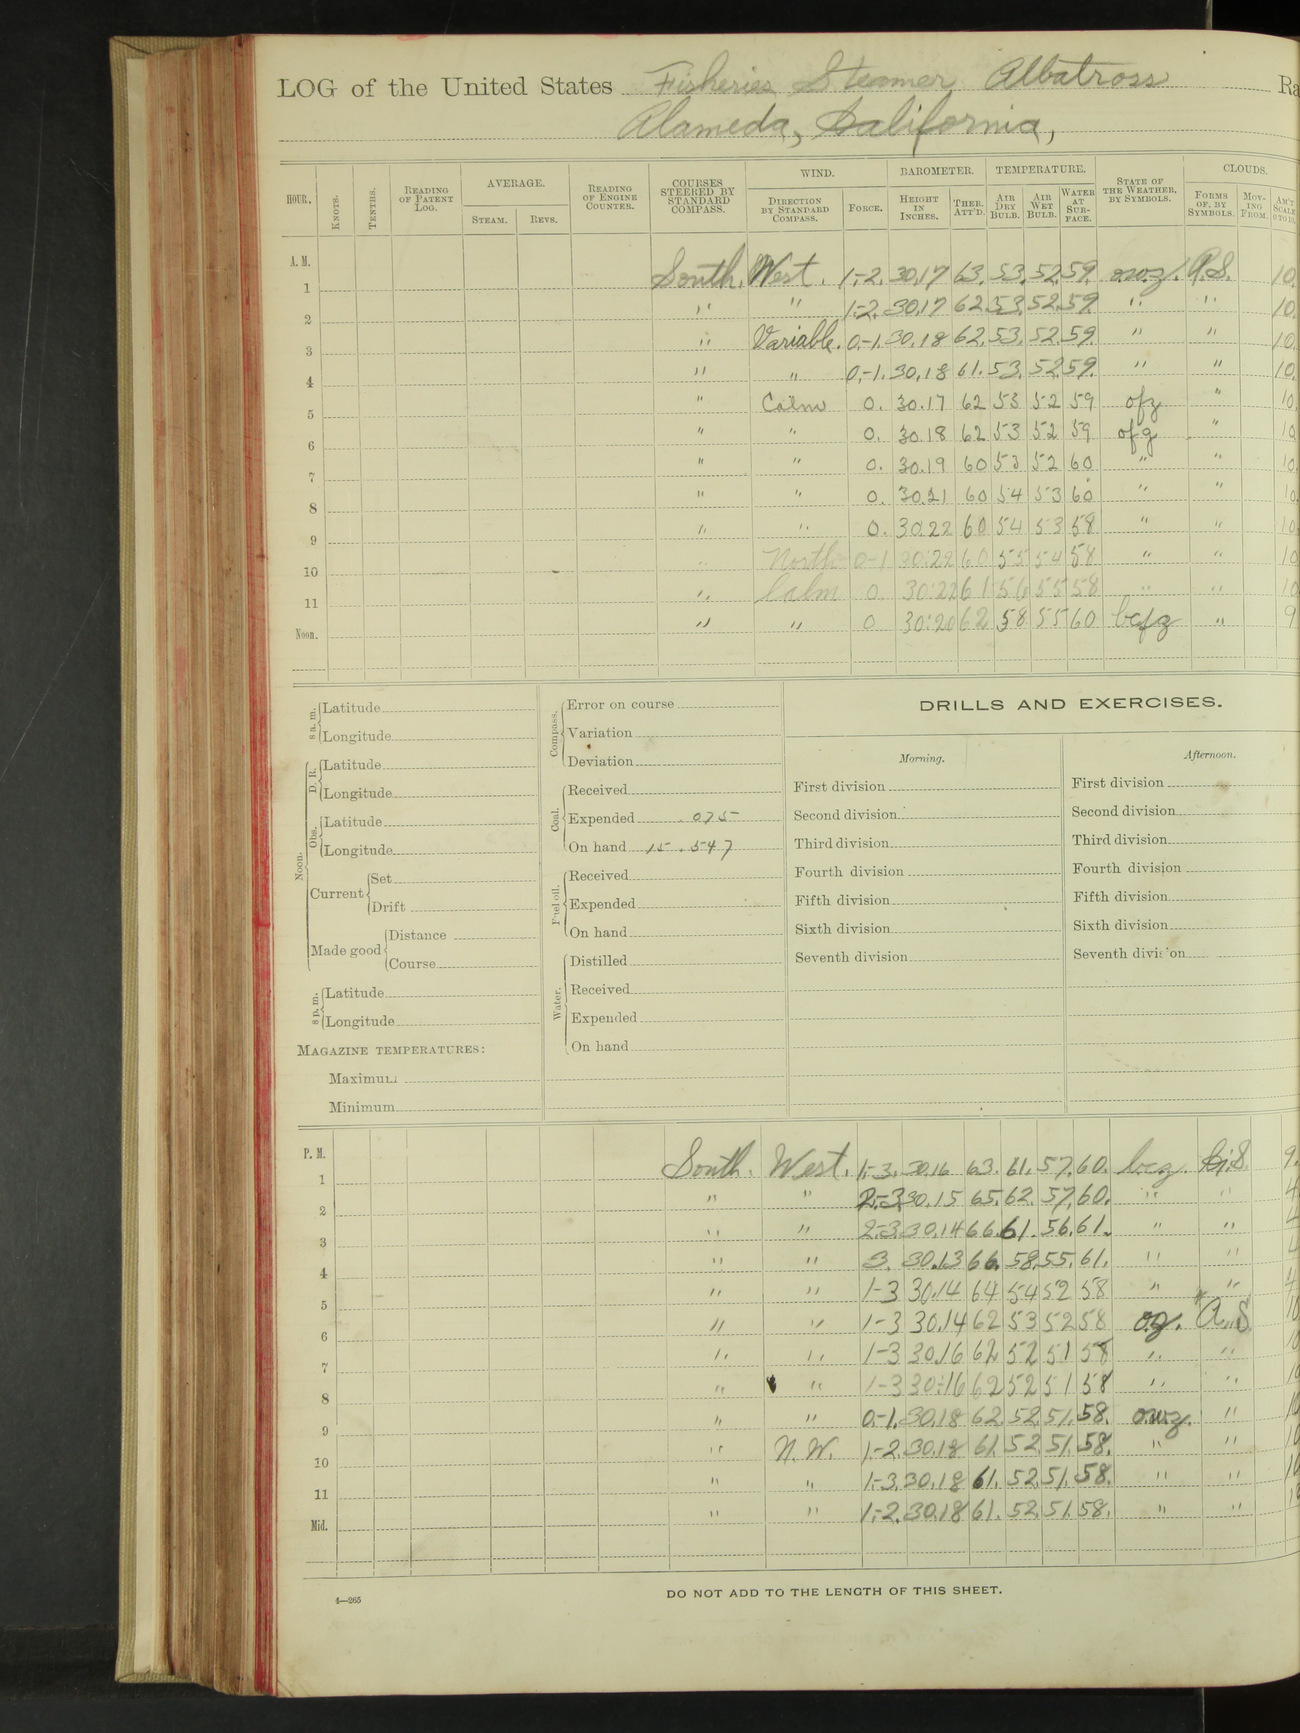 LOG of the United States Fisheries Steamer Albatross Ra
Alameda, California,
HOUR. KNOTS. TENTHS. READING OF PATENT LOG. AVERAGE. STEAM. REVS. READING OF ENGINE COUNTER. COURSES STEERED BY STANDARD COMPASS. WIND. DIRECTION BY STANDARD COMPASS. FORCE. BAROMETER. HEIGHT IN INCHES. THER. ATT'D. TEMPERATURE. AIR DRY BULB. AIR WET BULB. WATER AT SUR-FACE. STATE OF THE WEATHER, BY SYMBOLS. CLOUDS. FORMS OF, BY SYMBOLS. MOV-ING FROM. AM'T SCALE 0 TO 10.
A. M.
1 South. West. 1-2. 30.17 63. 53. 52. 59. o.w.z. A.S. 10.
2 " " 1-2. 30.17 62. 53. 52. 59. " " 10.
3 " Variable. 0-1. 30.18 62. 53. 52. 59. " " 10.
4 " " 0-1. 30.18 61. 53. 52. 59. " " 10.
5 " Calm 0. 30.17 62 53 52 59 ofz " 10.
6 " " 0. 30.18 62 53 52 59 ofg " 10
7 " " 0. 30.19 60 53 52 60 " " 10.
8 " " 0. 30.21 60 54 53 60 " " 10
9 " " 0. 30.22 60 54 53 58 " " 10
10 " North 0-1 30.22 60 55 54 58 " " 10
11 " Calm 0 30.22 61 56 55 58 " " 10
Noon. " " 0 30.20 62 58 55 60 bcfz " 9
8 a. m. Latitude
Longitude
Noon. D. R. Latitude
Longitude
Obs. Latitude
Longitude
Current Set
Drift
Made good Distance
Course
8 p. m. Latitude
Longitude
MAGAZINE TEMPERATURES:
Maximum
Minimum
Compass. Error on course
Variation
Deviation
Coal. Received
Expended .075
On hand 15.547
Fuel oil. Received
Expended
On hand
Water. Distilled
Received
Expended
On hand
DRILLS AND EXERCISES.
Morning.
First division
Second division
Third division
Fourth division
Fifth division
Sixth division
Seventh division
Afternoon.
First division
Second division
Third division
Fourth division
Fifth division
Sixth division
Seventh division
P. M.
1 South. West. 1-3. 30.16 63. 61. 57. 60. bcz. Ci.S. 9.
2 " " 2-3. 30.15 65. 62. 57. 60. " " 4
3 " " 2-3. 30.14 66. 61. 56. 61. " " 4
4 " " 3. 30.13 66. 58. 55. 61. " " 4
5 " " 1-3 30.14 64 54 52 58 " " 4
6 " " 1-3 30.14 62 53 52 58 o.z. A.S. 10
7 " " 1-3 30.16 62 52 51 58 " " 10
8 " " 1-3 30.16 62 52 51 58 " " 10
9 " " 0-1. 30.18 62. 52. 51. 58. o.w.z. " 10
10 " N.W. 1-2. 30.18 61. 52. 51. 58. " " 10
11 " " 1-3. 30.18 61. 52. 51. 58. " " 10
Mid. " " 1-2. 30.18 61. 52. 51. 58. " " 10
4—265
DO NOT ADD TO THE LENGTH OF THIS SHEET.